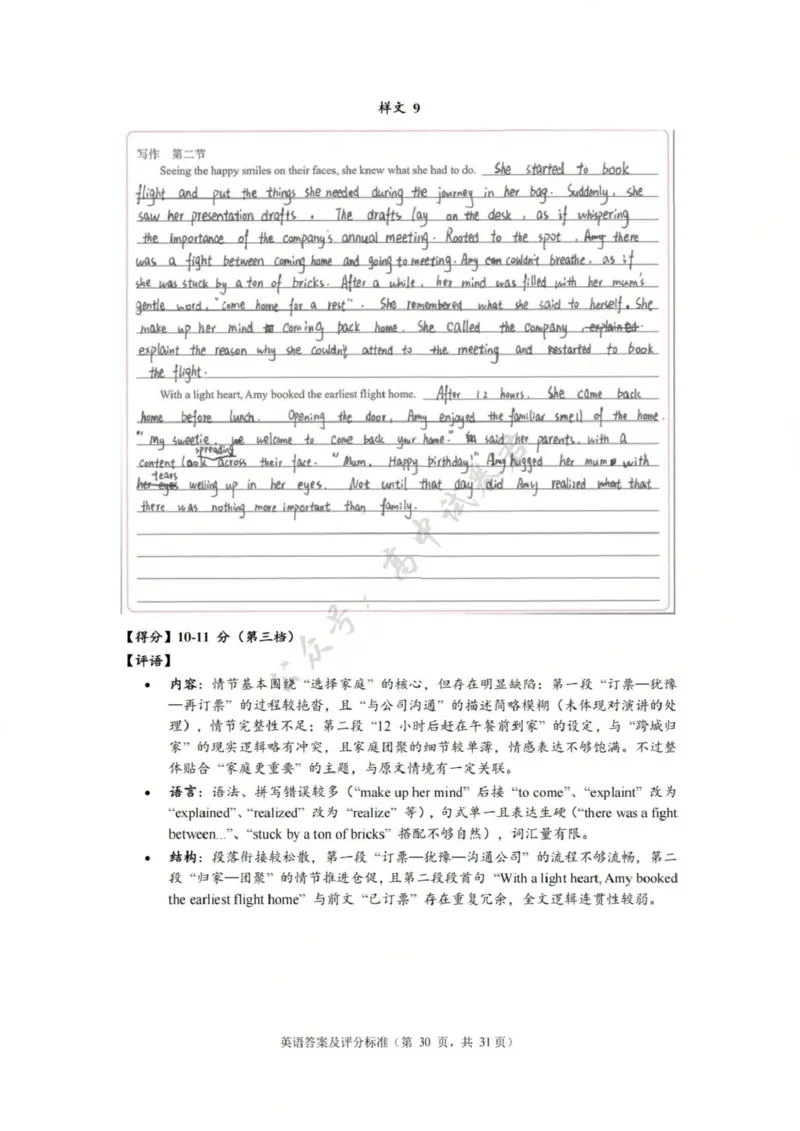 样文 9
写作 第二节
Seeing the happy smiles on their faces, she knew what she had to do. She started to book
flight and put the things she needed during the journey in her bag. Suddenly, she
saw her presentation drafts. The drafts lay on the desk, as if whispering
the importance of the company's annual meeting. Rooted to the spot, Amy there
was a fight between coming home and going to meeting. Amy can couldn't breathe, as if
she was stuck by a ton of bricks. After a while, her mind was filled with her mum's
gentle word, "come home for a rest". She remembered what she said to herself. She
make up her mind to coming back home. She called the company, explained
explaint the reason why she couldn't attend to the meeting and restarted to book
the flight.
With a light heart, Amy booked the earliest flight home. After 12 hours, She came back
home before lunch. Opening the door, Amy enjoyed the familiar smell of the home.
"My sweetie, we welcome to come back your home." said her parents, with a
spreading
content look across their face. "Mum, Happy birthday!" Amy hugged her mum with
tears
her eyes welling up in her eyes. Not until that day did Amy realized what that
there was nothing more important than family.
公众号：高中试卷君
【得分】10-11 分（第三档）
【评语】
• 内容：情节基本围绕“选择家庭”的核心，但存在明显缺陷：第一段“订票—犹豫
—再订票”的过程较拖沓，且“与公司沟通”的描述简略模糊（未体现对演讲的处
理），情节完整性不足；第二段“12 小时后赶在午餐前到家”的设定，与“跨城归
家”的现实逻辑略有冲突，且家庭团聚的细节较单薄，情感表达不够饱满。不过整
体贴合“家庭更重要”的主题，与原文情境有一定关联。
• 语言：语法、拼写错误较多（“make up her mind”后接“to come”、“explaint”改为
“explained”、“realized”改为“realize”等），句式单一且表达生硬（“there was a fight
between...”、“stuck by a ton of bricks”搭配不够自然），词汇量有限。
• 结构：段落衔接较松散，第一段“订票—犹豫—沟通公司”的流程不够流畅，第二
段“归家—团聚”的情节推进仓促，且第二段段首句“With a light heart, Amy booked
the earliest flight home”与前文“已订票”存在重复冗余，全文逻辑连贯性较弱。
英语答案及评分标准（第 30 页，共 31 页）